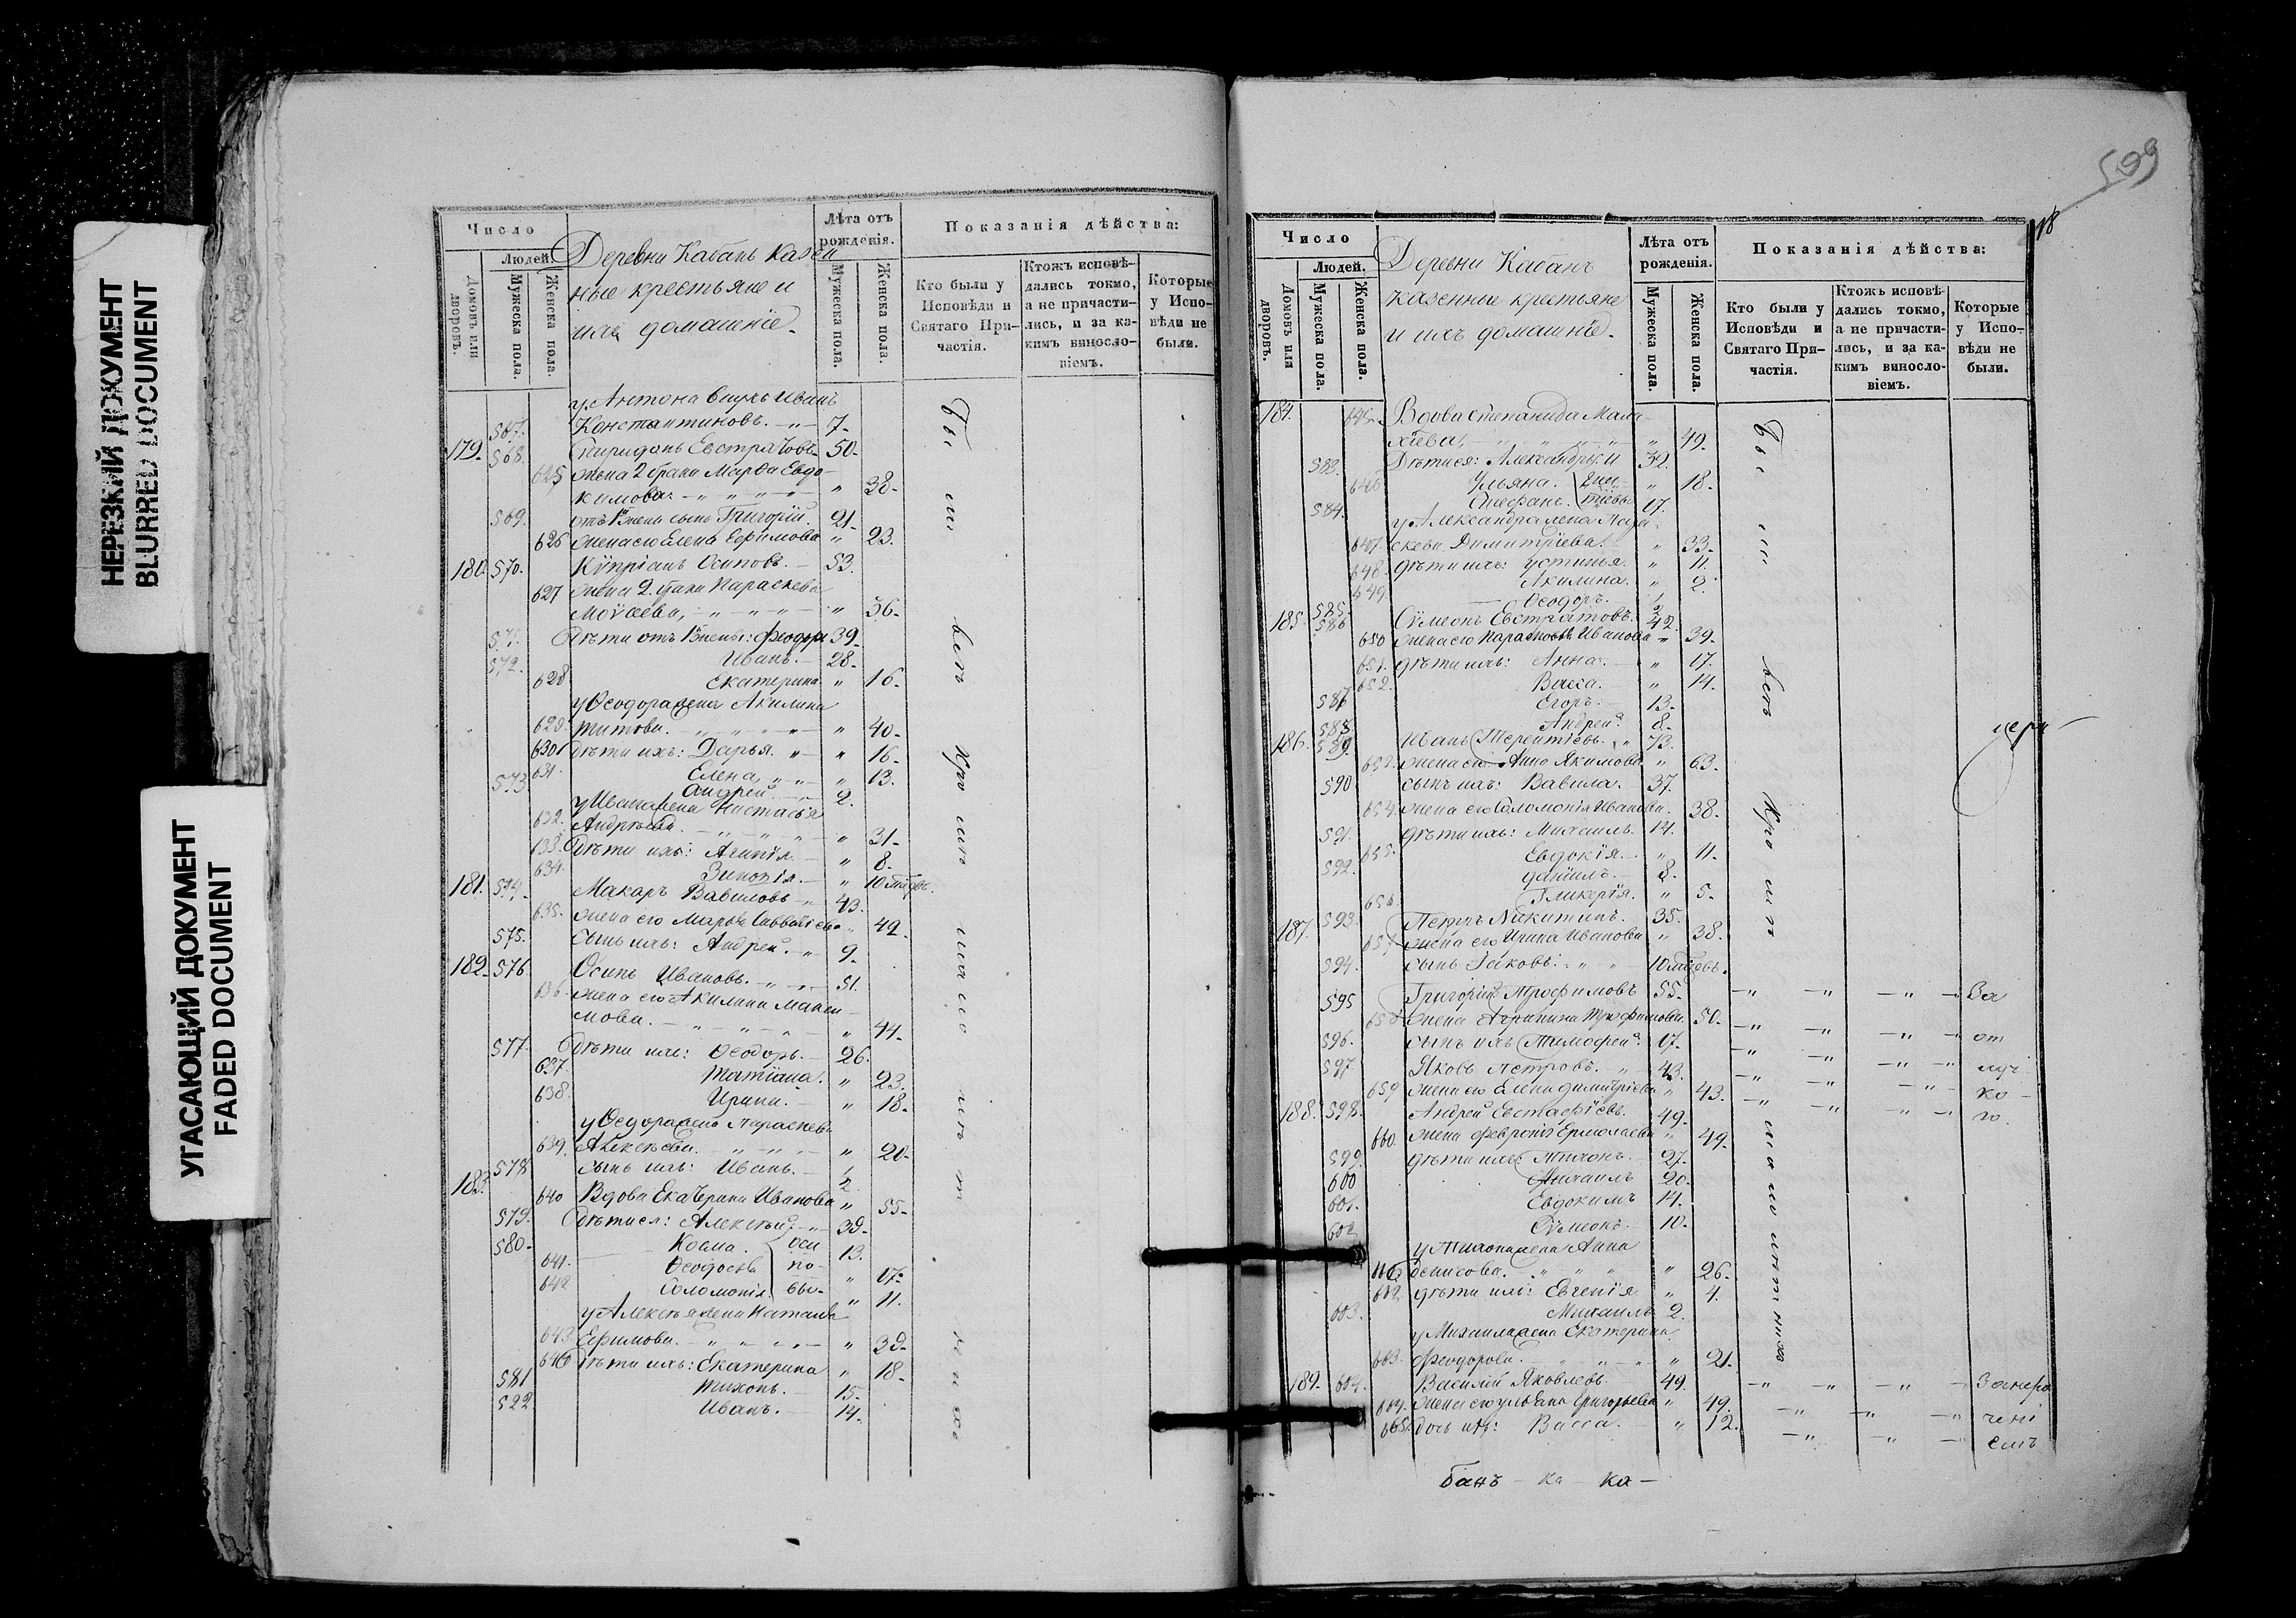 НЕРЕЗКИЙ ДОКУМЕНТ
BLURRED DOCUMENT
УГАСАЮЩИЙ ДОКУМЕНТ
FADED DOCUMENT
Число
Людей.
Домовъ или дворовъ.
Мужеска пола.
Женска пола.
Деревни Кабанъ казен
ные крестьяне и
ихъ домашніе.
Лѣта отъ рожденія.
Мужеска пола.
Женска пола.
Показанія дѣйства:
Кто были у Исповѣди и Святаго При-частія.
Ктожъ исповѣ-дались токмо, а не причасти-лись, и за ка-кимъ виносло-віемъ.
Которые у Испо-вѣди не были.
у Антона внукъ Иванъ
567. Константиновъ. 7.
179. 568. Спиридонъ Евстратовъ 50.
625 жена 2 брака Марѳа Евдо-
кимова. " 38.
569. отъ 1 жены сынъ Григорій. 21.
626 жена его Елена Ефимова " 23.
180. 570. Кѵпріанъ Осиповъ. 53.
627 жена 2. брака Параскева
Моѵсеева, " 36.
571. Дѣти отъ 1 жены: Феодоръ 39.
572. Иванъ. 28.
628 Екатерина. " 16.
у Ѳеодора жена Акилина
629. Титова. " 40.
630 дѣти ихъ: Дарья. " 16.
631. Елена " 13.
573 Андрей 2.
у Ивана жена Настасія
632. Андреева. " 31.
633. Дѣти ихъ: Агапія. " 8.
634. Зиновія. " 10 мѣсяц.
181. 574. Макаръ Вавиловъ 43.
635. жена его Марѳа Савватіева " 42.
575. сынъ ихъ: Андрей. 9.
182. 576 Осипъ Ивановъ. 51.
636. жена его Акилина Макси
мова. " 44.
577. Дѣти ихъ: Ѳеодоръ. 26.
637. Татіана. " 23.
638. Ирина. " 18.
у Ѳедора жена Параскева
639. Алексѣева. " 20.
578 сынъ ихъ: Иванъ. 2
183. 640 Вдова Екатерина Иванова " 55.
579. Дѣти ея: Алексѣй. 39.
580. Косма. Оси 13.
641. Ѳеодосья по- " 17.
642 Соломонія. вы. " 11.
у Алексѣя жена Наталья
643. Ефимова. " 39.
646 Дѣти ихъ: Екатерина " 18.
581 Тихонъ. 15.
522. Иванъ. 14.
Бы ли
599
18
Число
Людей.
Домовъ или дворовъ.
Мужеска пола.
Женска пола.
Деревни Кабанъ
казенные крестьяне
и ихъ домашніе.
Лѣта отъ рожденія.
Мужеска пола.
Женска пола.
Показанія дѣйства:
Кто были у Исповѣди и Святаго При-частія.
Ктожъ исповѣ-дались токмо, а не причасти-лись, и за ка-кимъ виносло-віемъ.
Которые у Испо-вѣди не были.
184. 645. Вдова Степанида Мала-
хіева, " 49.
583. Дѣти ея: Александръ 32.
646. Ульяна. " 18.
584. Стефанъ. 17.
у Александра жена Пара
647. скева Димитріева. " 33.
648. дѣти ихъ: Устинья. " 11.
649 Акилина. " 2.
585. Ѳеодоръ. 2
185. 586 Сѵмеонъ Евстратовъ. 42.
650 жена его Параскева Иванова " 39.
651. дѣти ихъ: Анна. " 17.
652. Васса. " 14.
587 Егоръ. 13.
588 Андрей. 8.
186. 589. Иванъ Терентіевъ. 73.
653. жена его Анна Якимова " 63.
590 сынъ ихъ: Вавила. 37.
654. жена его Соломонія Иванова. 38.
591. дѣти ихъ: Михаилъ. 14.
655. Евдокія. " 11.
592. Даніилъ. 8.
656. Гликерія. " 5.
187. 593. Петръ Никитинъ. 35.
657 жена его Ирина Иванова " 38.
594. сынъ Іаковъ. 10 мѣсяц.
595 Григорій Трофимовъ 55. За
658 жена Агрипина Трофимова. 50. от
596. сынъ ихъ Тимофей. 17. луч
597 Яковъ Петровъ. 43. ко
659 жена его Елена Димитріева " 43. ю.
188. 598. Андрей Евстафіевъ. 49.
660. жена Февронія Ермолаева " 49.
599. дѣти ихъ: Тихонъ. 27.
600 Михаилъ 20.
601. Евдокимъ 14.
602 Сѵмеонъ. 10.
у Тихона жена Анна
Денисова. " 26.
662 дѣти ихъ: Евгенія " 4.
603. Михаилъ 2.
у Михаила жена Екатерина
663. Феодорова. " 21.
189. 604. Василій Яковлевъ. 49. Занере
664. жена его Ульяна Григорьева " 49. чені
665. дочь ихъ: Васса. " 12. емъ
Бы ли
банъ - ка - ка -